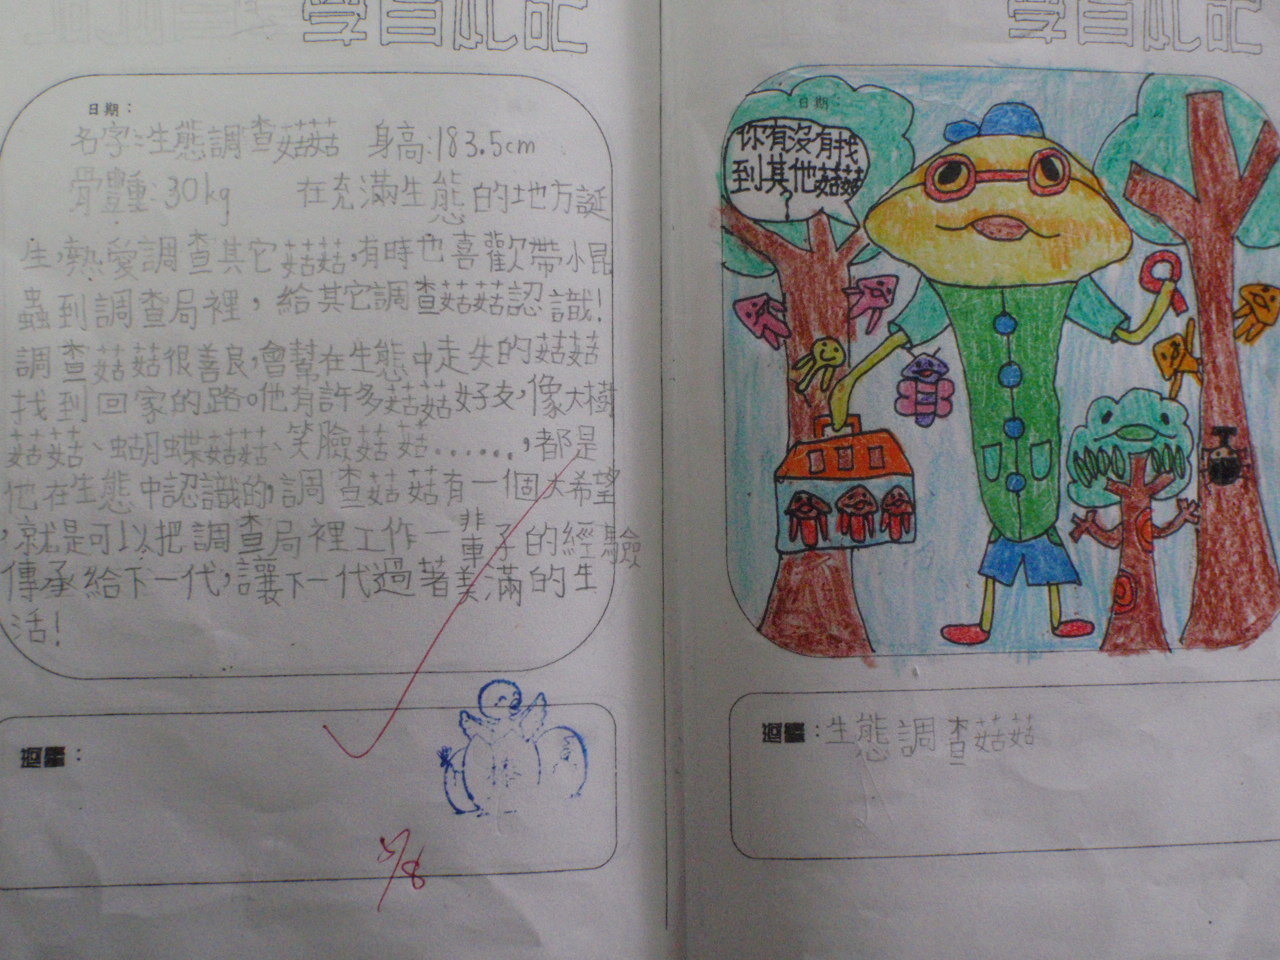 學習札記
日期：
名字:生態調查菇菇 身高:183.5cm
體重:30kg 在充滿生態的地方誕
生,熱愛調查其它菇菇,有時也喜歡帶小昆
蟲到調查局裡，給其它調查菇菇認識!
調查菇菇很善良,會幫在生態中走失的菇菇
找到回家的路。他有許多菇菇好友,像大樹
菇菇、蝴蝶菇菇、笑臉菇菇……,都是
他在生態中認識的,調查菇菇有一個大希望
,就是可以把調查局裡工作一輩子的經驗
傳承給下一代,讓下一代過著美滿的生
活!
迴響：
5/8
學習札記
日期：
你有沒有找
到其他菇菇
?
迴響：生態調查菇菇